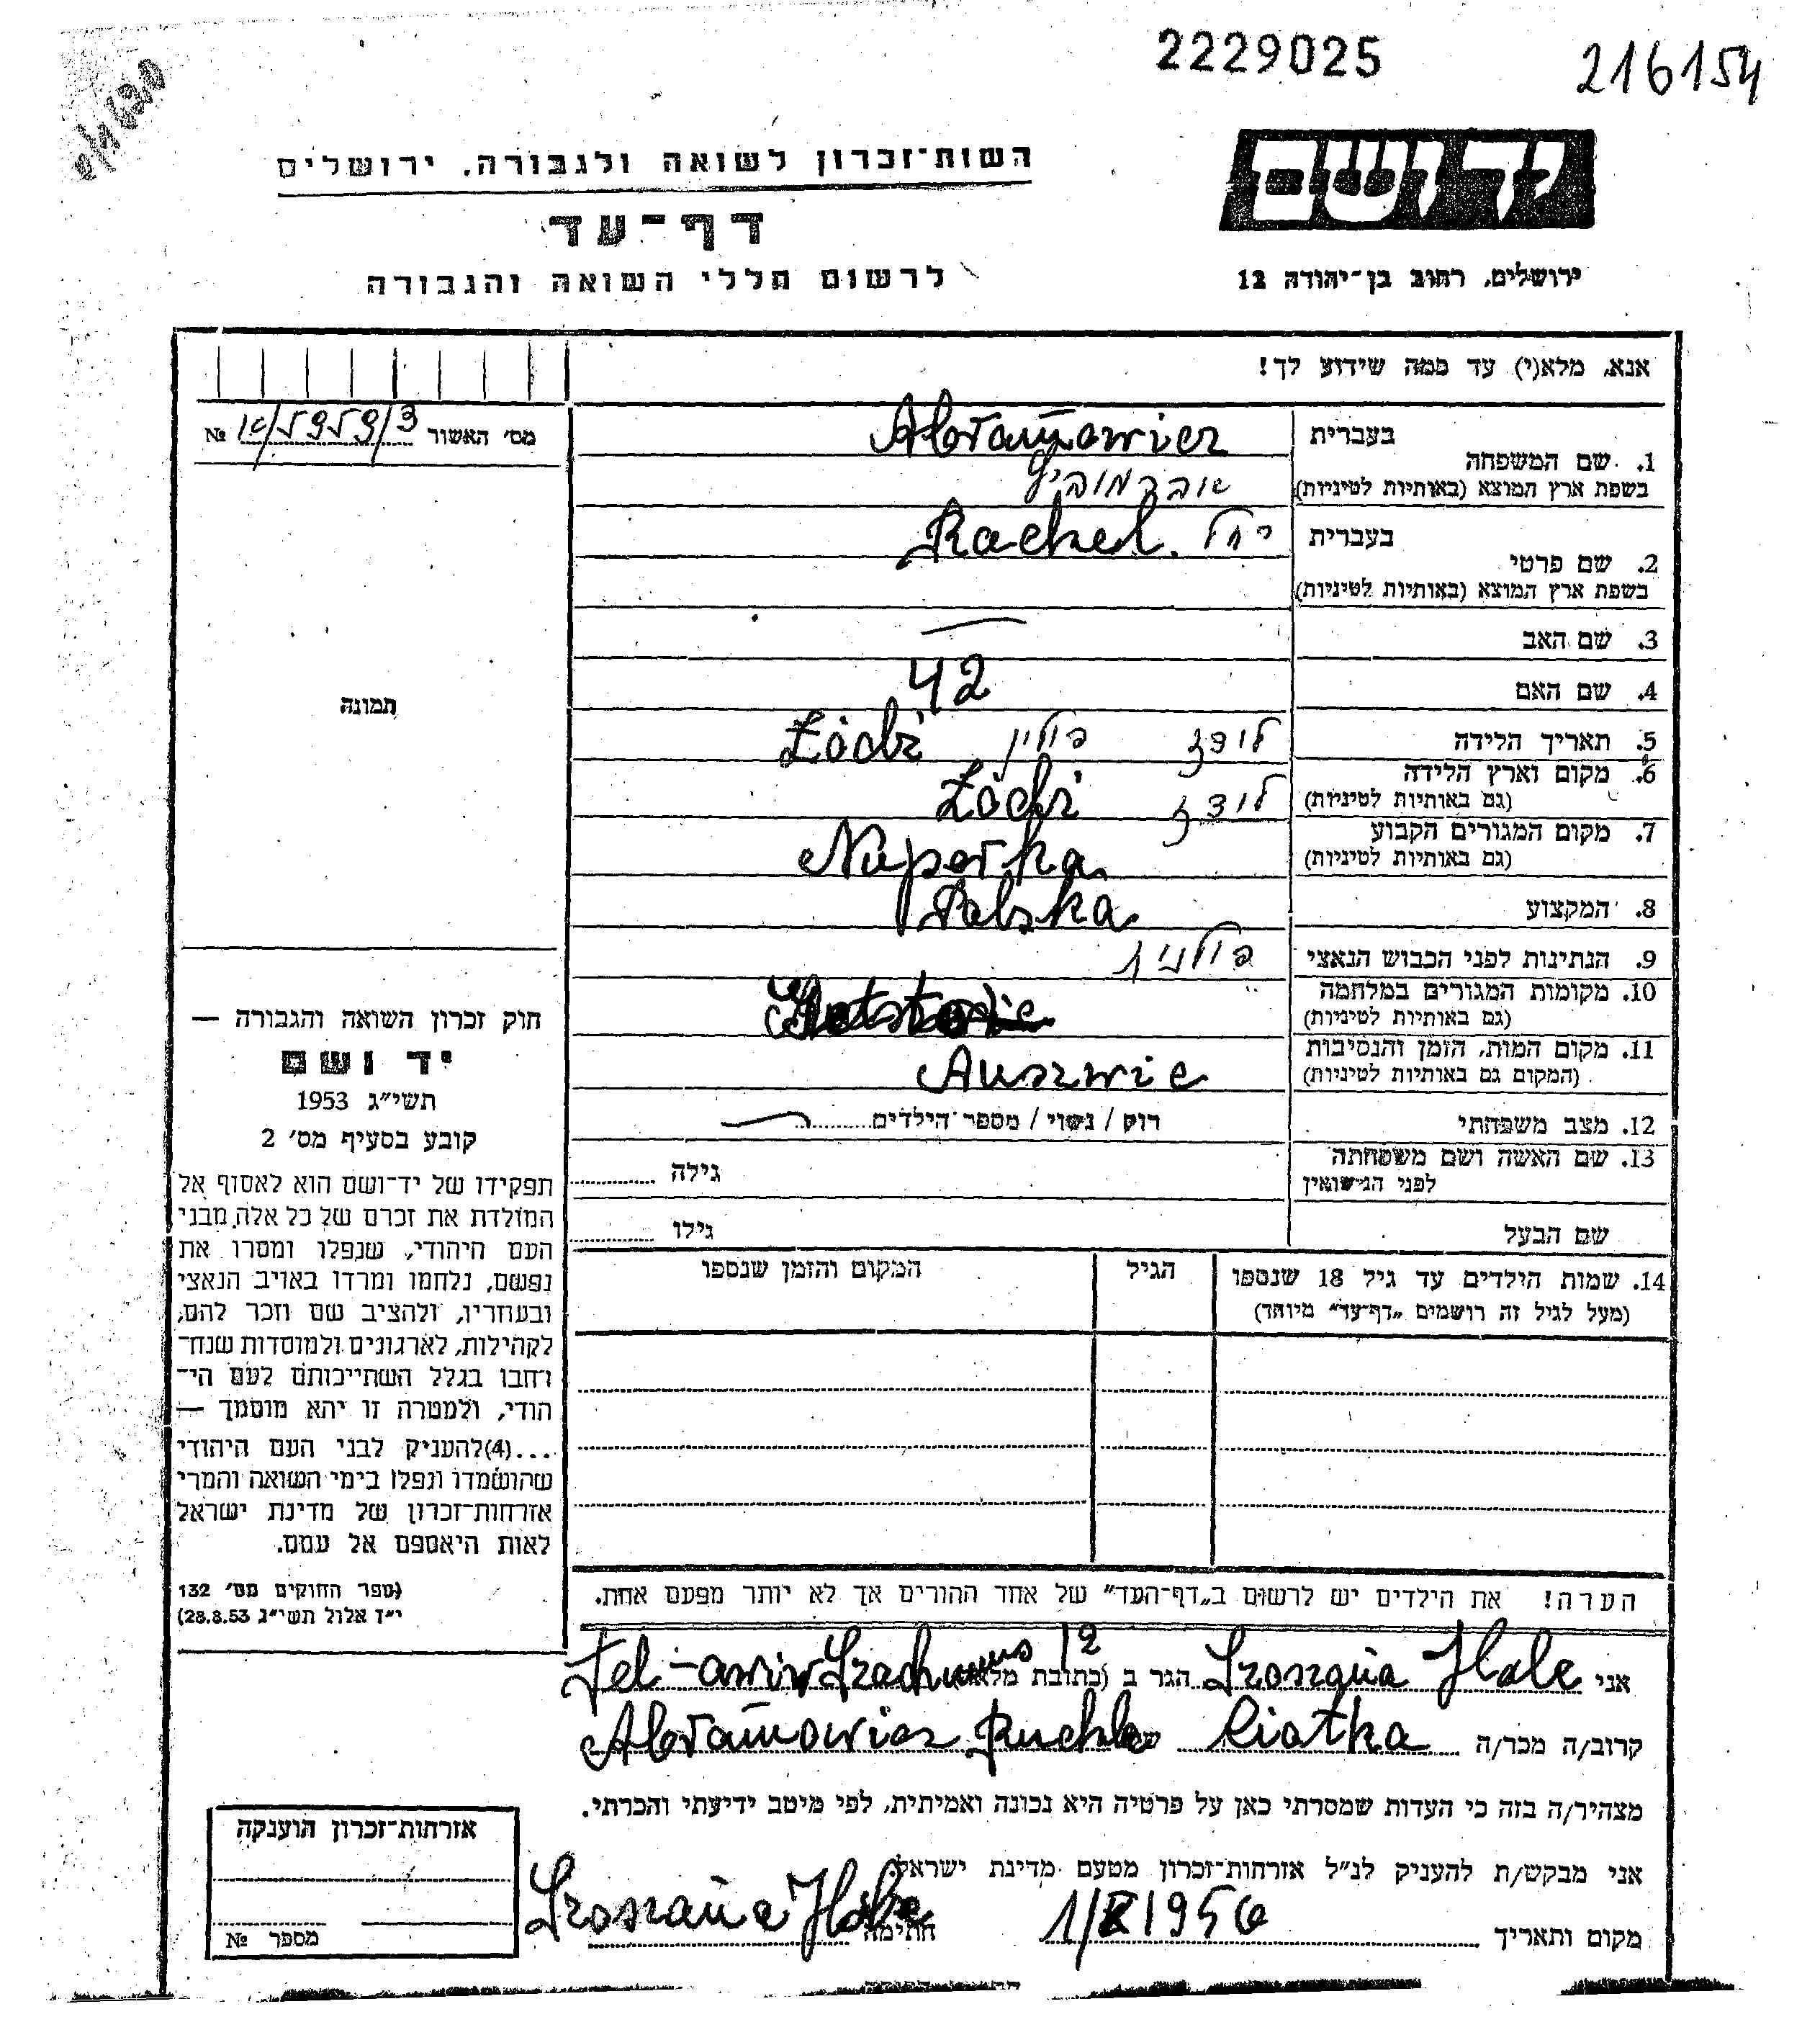 2229025
216154
יד ושם
השות־זכרון לשואה ולגבורה, ירושלים
דף־עד
לרשום חללי השואה והגבורה
ירושלים, רחוב בן־יהודה 12
אנא, מלא(י) עד כמה שידוע לך!
מס׳ האשור №
בעברית Abramowicz
1. שם המשפחה
בשפת ארץ המוצא (באותיות לטיניות) אברמוביץ
בעברית רחל Rachel
2. שם פרטי
בשפת ארץ המוצא (באותיות לטיניות)
3. שם האב
4. שם האם 42
5. תאריך הלידה לודז פולין Łódź
6. מקום וארץ הלידה
(גם באותיות לטיניות) לודז Łódź
7. מקום המגורים הקבוע
(גם באותיות לטיניות)
8. המקצוע Polska
9. הנתינות לפני הכבוש הנאצי פולנית
10. מקומות המגורים במלחמה
(גם באותיות לטיניות)
11. מקום המות, הזמן והנסיבות
(המקום גם באותיות לטיניות) Auszwic
12. מצב משפחתי רוק / נשוי / מספר הילדים
13. שם האשה ושם משפחתה
לפני הנישואין גילה
שם הבעל גילו
14. שמות הילדים עד גיל 18 שנספו הגיל המקום והזמן שנספו
(מעל לגיל זה רושמים „דף־עד" מיוחד)
הערה! את הילדים יש לרשום ב„דף־העד" של אחד ההורים אך לא יותר מפעם אחת.
תמונה
חוק זכרון השואה והגבורה —
יד ושם
תשי״ג 1953
קובע בסעיף מס׳ 2
תפקידו של יד־ושם הוא לאסוף אל
המולדת את זכרם של כל אלה מבני
העם היהודי, שנפלו ומסרו את
נפשם, נלחמו ומרדו באויב הנאצי
ובעוזריו, ולהציב שם וזכר להם,
לקהילות, לארגונים ולמוסדות שנח־
רבו בגלל השתייכותם לעם הי־
הודי, ולמטרה זו יהא מוסמך —
...(4)להעניק לבני העם היהודי
שהושמדו ונפלו בימי השואה והמרי
אזרחות־זכרון של מדינת ישראל
לאות היאספם אל עמם.
(ספר החוקים מס׳ 132
י״ז אלול תשי״ג 28.8.53)
אני הגר ב (כתובת מלאה) 12
קרוב/ה מכר/ה Ciotka של Abramowicz
מצהיר/ה בזה כי העדות שמסרתי כאן על פרטיה היא נכונה ואמיתית, לפי מיטב ידיעתי והכרתי.
אני מבקש/ת להעניק לנ״ל אזרחות־זכרון מטעם מדינת ישראל
מקום ותאריך 1956 חתימה
אזרחות־זכרון הוענקה
מספר №